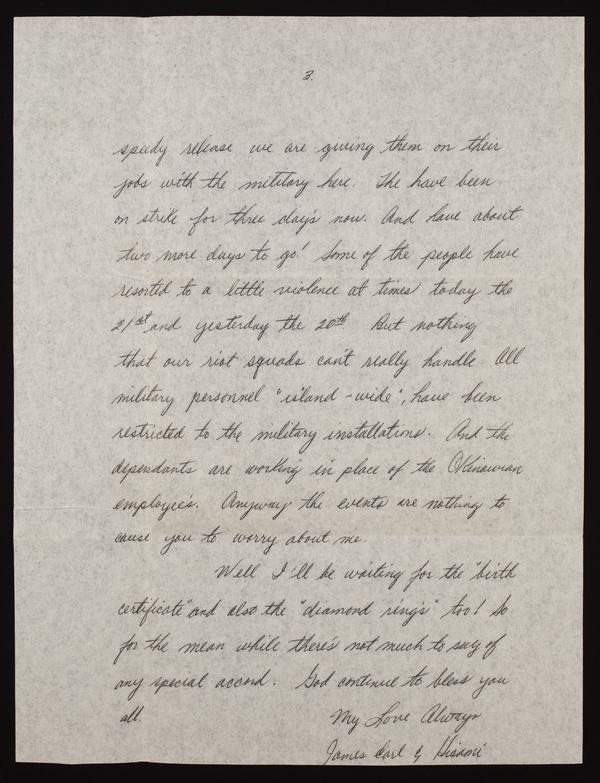 3.
speedy release we are giving them on their
jobs with the military here. The have been
on strike for three day's now. And have about
two more days to go! Some of the people have
resorted to a little violence at times today the
21st and yesterday the 20th. But nothing
that our riot squads can't really handle. All
military personnel "island-wide", have been
restricted to the military installations. And the
dependants are working in place of the Okinawan
employee's. Anyway the events are nothing to
cause you to worry about me.
Well I'll be waiting for the "birth
certificate" and also the "diamond ring's" too! So
for the mean while there's not much to say of
any special accord. God continue to bless you
all.
My Love Always
James Earl & Hisami